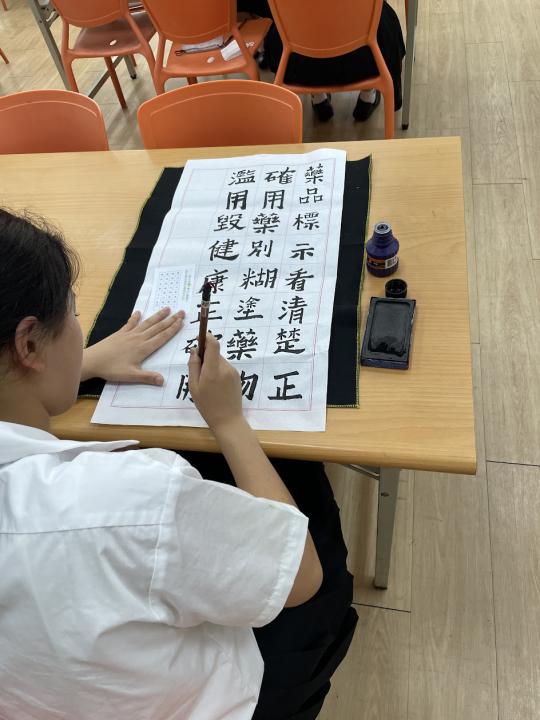 藥品標示看清楚正
確用藥別糊塗藥物
濫用毀健康正確用